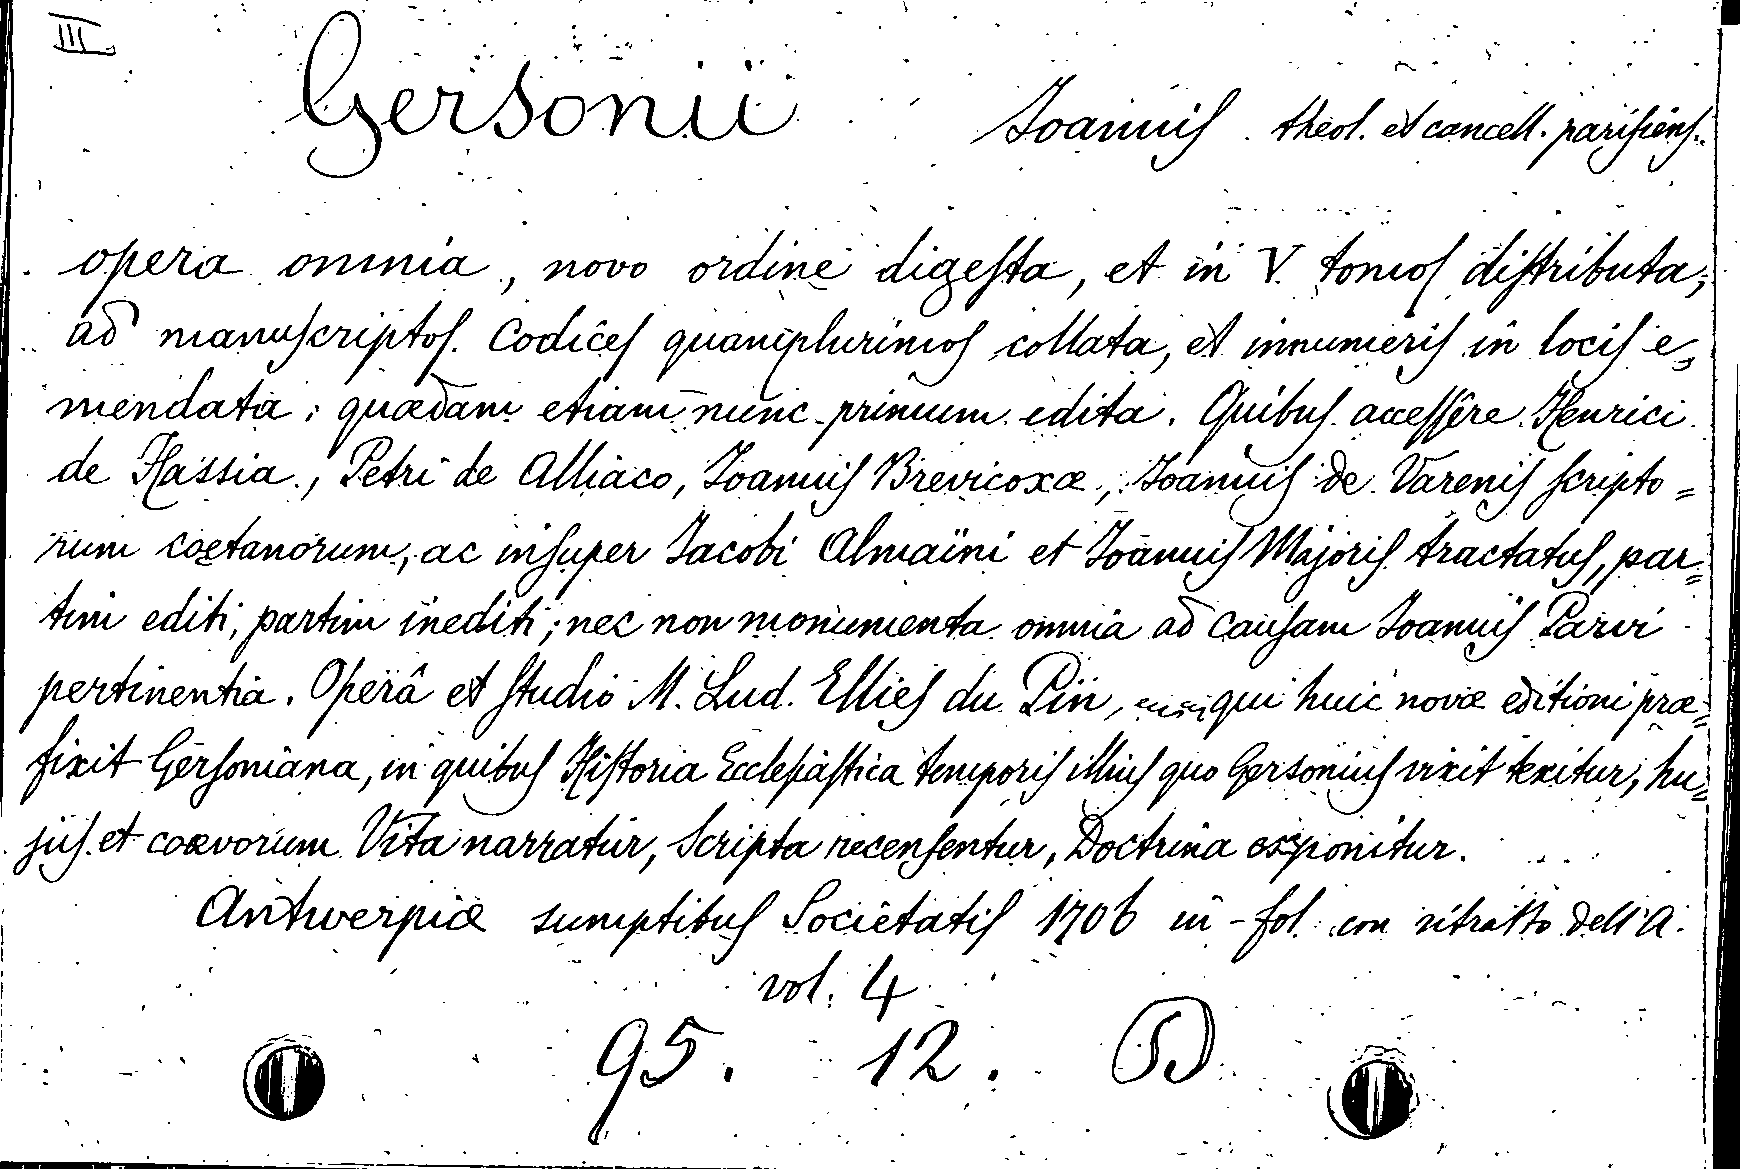 III.
Gersonii Joannis theol. et cancell. parisiens.
opera omnia, novo ordine digesta, et in V. tomos distributa,
ad manuscriptos Codices quamplurimos collata, et innumeris in locis e=
mendata; quædam etiam nunc primum edita. Quibus accessêre Henrici
de Hassia, Petri de Alliaco, Joannis Brevicoxæ, Joannis de Varenis scripto=
rum coætanorum, ac insuper Jacobi Almaini et Joannis Majoris tractatus, par=
tim editi, partim inediti; nec non monumenta omnia ad causam Joannis Parvi
pertinentia. Operâ et studio M. Lud. Ellies du Pin, qui huic novæ editioni præ=
fixit Gersoniana, in quibus Historia Ecclesiastica temporis illius quo Gersonius vixit texitur, hu=
jus et coævorum Vita narratur, Scripta recensentur, Doctrina exponitur.
Antwerpiæ sumptibus Societatis 1706 in-fol. con ritratto dell'A.
vol. 4
95. 12.